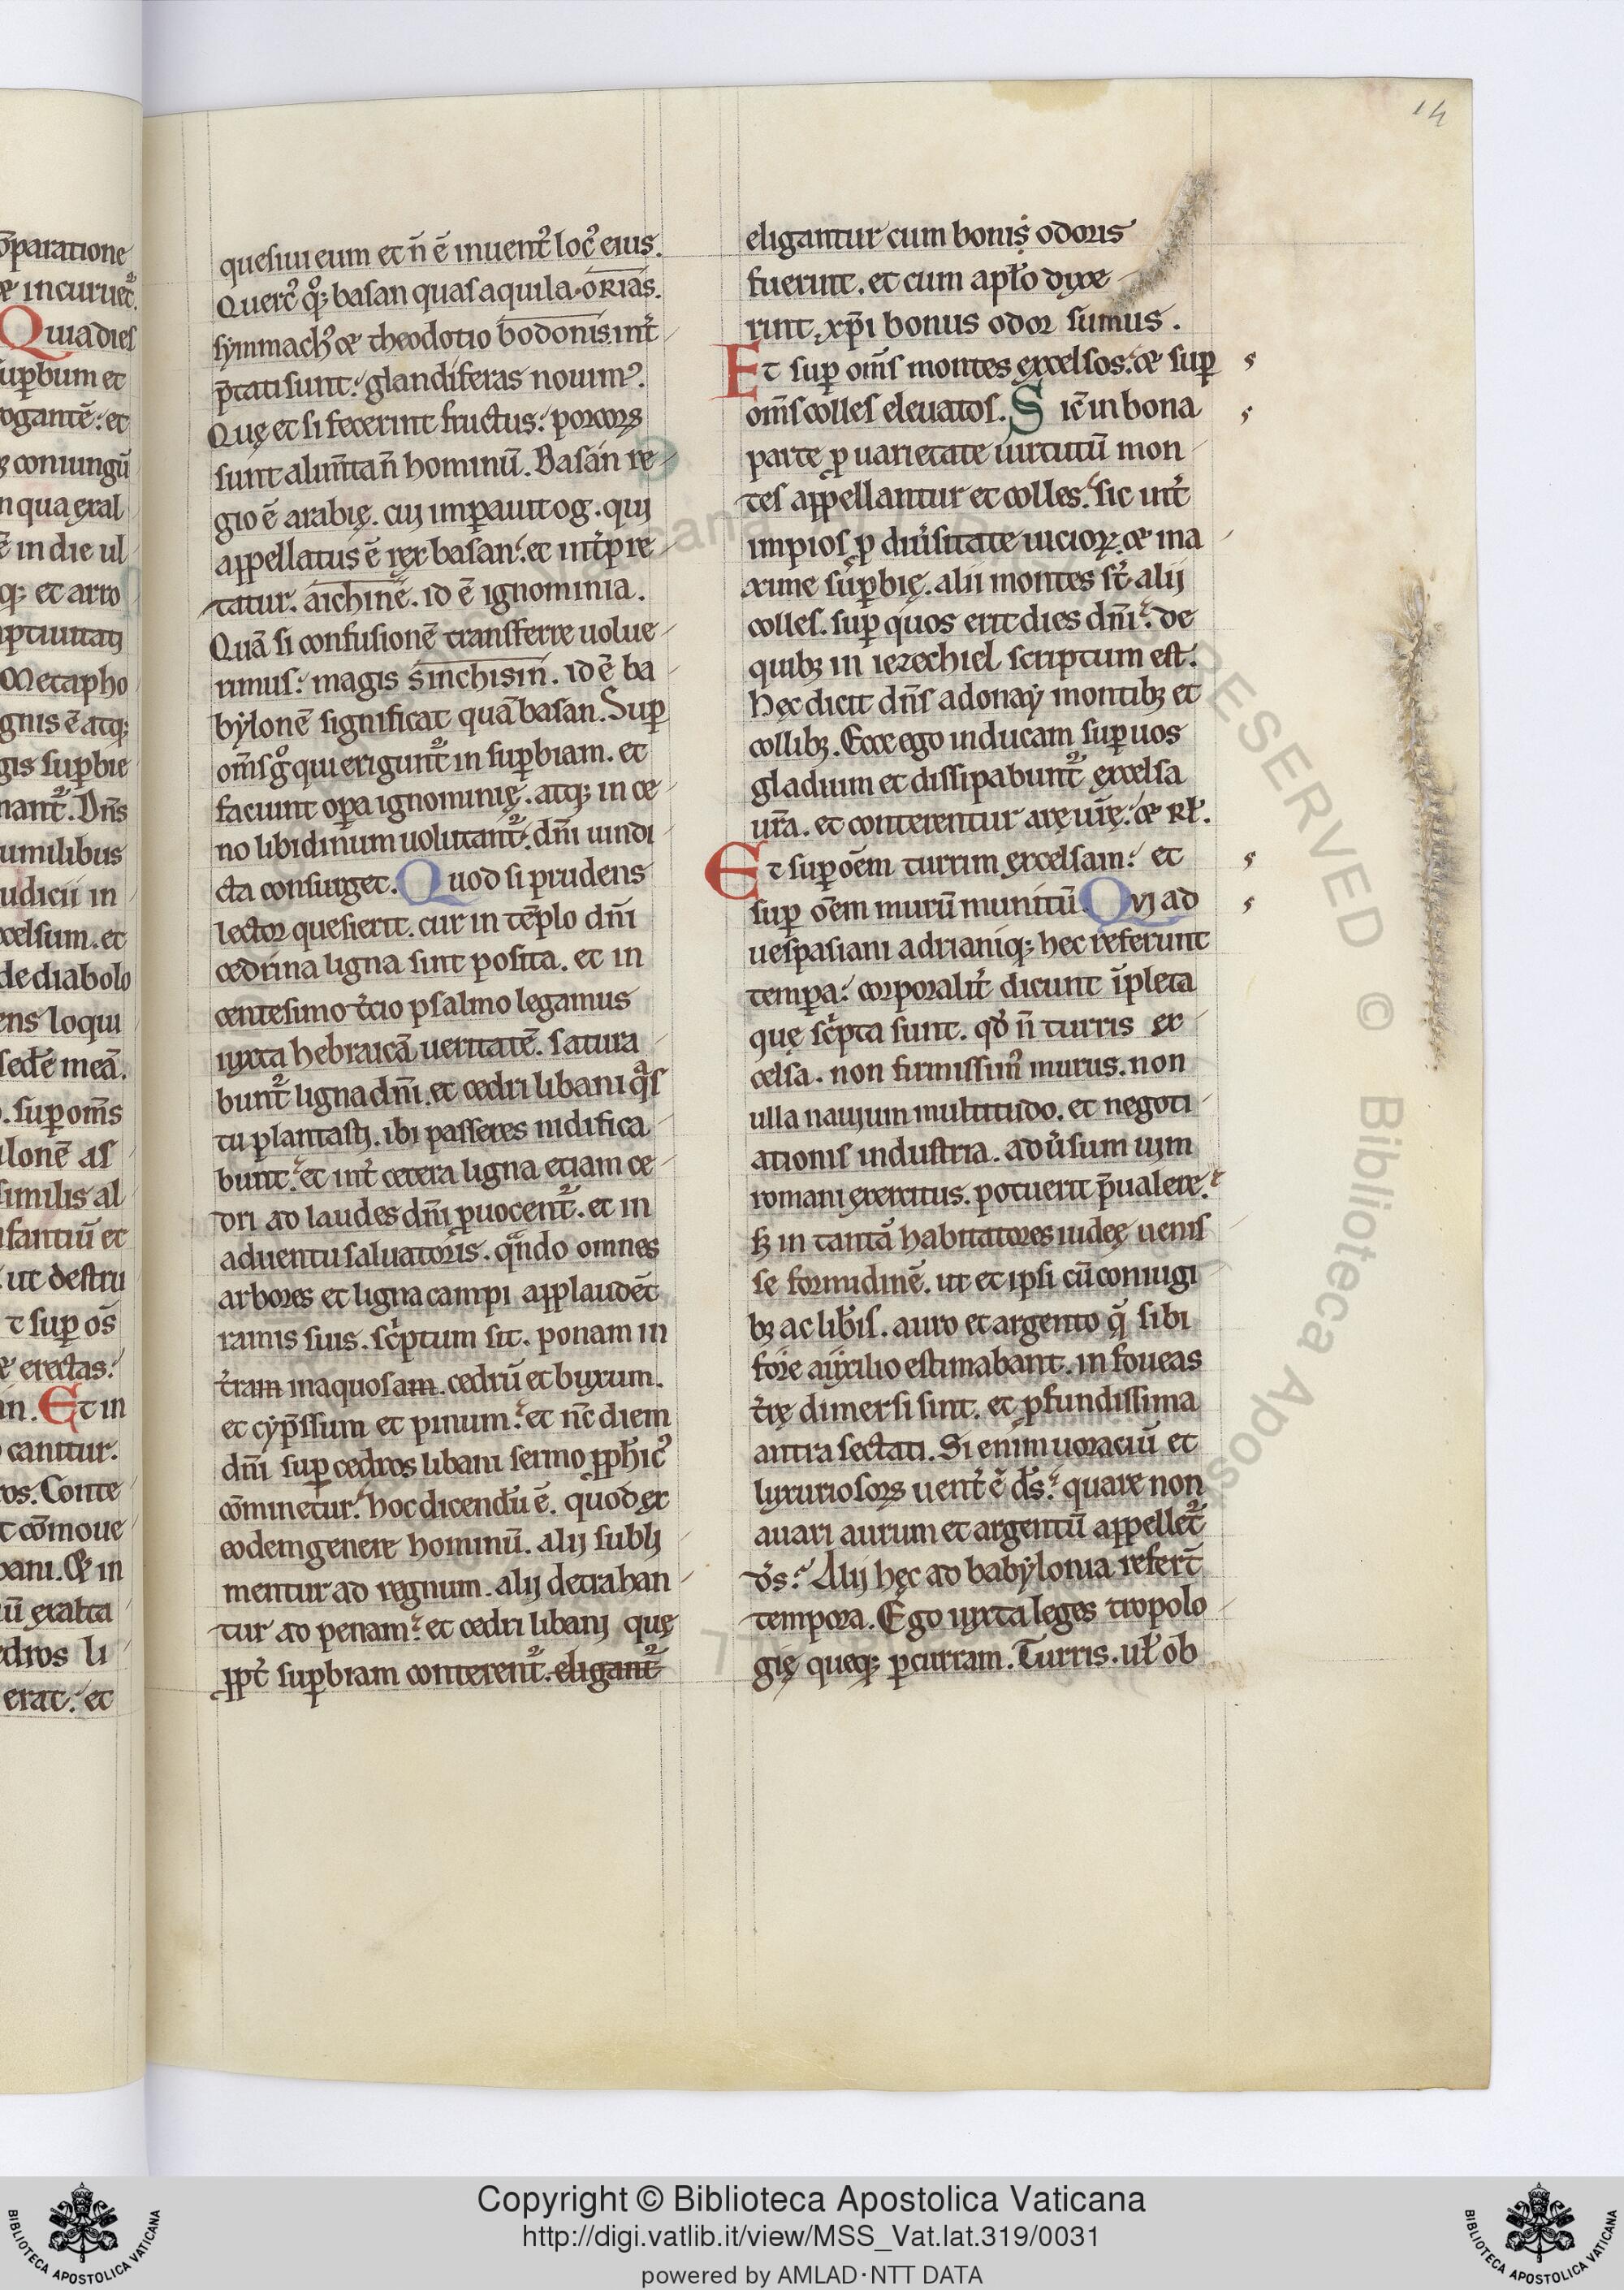 14
o̅paratione
æ incuruet᷑.
Quia dies
sup̱bum et
rogante̅: et
coniungu̅
qua exal
e̅ in die ul
q; et arro
ptiuitati
Metapho
gnis e̅ atq;
gis sup̱bie
nant᷑. Dn̅s
umilibus
udicii in
celsum. et
de diabolo
ens loqui
sede̅ mea̅.
. sup̱ om̅s
ilone̅ as
similis al
fantiu̅ et
ut destru
t sup̱ os̅
æ erectas:
in. Et in
canitur.
ros. Conte
t co̅moue
bani. Et in
iu̅ exalta
edros li
erat: et
quesiui eum et n̅ e̅ inuent᷒ loc᷒ eius.
Querc᷒ qͦ; basan quas aquila. orias.
sẏmmach᷒ æ theodotio bodonis. int̾
p̅tati sunt: glandiferas nouim᷒.
Quę et si fecerint fructus: porcoꝝ
sunt alim̅ta n̅ hominu̅. Basan re
gio e̅ arabię. cui imp̱auit og. qui
appellatus e̅ rex basan: et int̾p̱re
tatur. aichine̅. id e̅ ignominia.
Qua̅ si confusione̅ transferre uolue
rimus: magis sinchisin. id e̅ ba
bẏlone̅ significat qua̅ basan. Sup̱
om̅s gͦ qui erigunt᷑ in sup̱biam. et
faciunt op̱a ignominię. atq; in ce
no libidinum uolutant᷑: dn̅i uindi
cta consurget. Quod si prudens
lector quesierit. cur in te̅plo dn̅i
cedrina ligna sint posita. et in
centesimo t̾cio psalmo legamus
iuxta hebraica̅ ueritate̅. satura
bunt᷑ ligna dn̅i. et cedri libani qᵃs
tu plantasti. ibi passeres nidifica
bunt: et int̾ cetera ligna etiam ce
dri ad laudes dn̅i ꝓuocent᷑. et in
aduentu saluatoris. qᵃndo omnes
arbores et ligna campi applaude̅t
ramis suis. scͥptum sit. ponam in
t̾ram inaquosam. cedru̅ et buxum.
et cẏp̅ssum et pinum: et nc̅ diem
dn̅i sup̱ cedros libani sermo ꝓph̅ic᷒
co̅minetur: hoc dicendu̅ e̅. quod ex
eodem genere hominu̅. alij subli
mentur ad regnum. alij detrahan
tur ad penam: et cedri libani quę
ꝓpt̾ sup̱biam conterent᷑. eligant᷑
eligantur cum bonis odoris
fuerint. et cum apl̅o dixe
rint. xp̅i bonus odor sumus.
Et sup̱ om̅s montes excelsos: æ sup̱
om̅s colles eleuatos. Sic̅ in bona
parte p̱ uarietate uirtutu̅ mon
tes appellantur et colles: sic int̾
impios p̱ diu̾sitate uicioꝝ. æ ma
xime sup̱bię. alii montes st̅. alii
colles. sup̱ quos erit dies dn̅i: de
quibꝫ in iezechiel scriptum est.
hęc dicit dn̅s adonaẏ montibꝫ et
collibꝫ. Ecce ego inducam sup̱ uos
gladium et dissipabunt᷑ excelsa
ur̅a. et conterentur arę ur̅ę: æ Rł.
Et sup̱ oe̅m turrim excelsam: et
sup̱ oe̅m muru̅ munitu̅. Qui ad
uespasiani adrianiq; hec referunt
temp̱a: corporalit̾ dicunt i̅pleta
quę scͥpta sunt. qd̅ n̅ turris ex
celsa. non firmissim᷒ murus. non
ulla nauium multitudo. et negoti
ationis industria. adu̾sum uim
romani exercitus. potuerit p̅ualere:
sꝫ in tanta̅ habitatores iudeę uenis
se formidine̅. ut et ipsi cu̅ coniugi
bꝫ ac lib̾is. auro et argento q̅ sibi
fore auxilio estimabant. in foueas
t̾rę dimersi sint. et ꝓfundissima
antra sectati. Si enim uoraciu̅ et
luxuriosoꝝ uent̾ e̅ ds̅: quare non
auari aurum et argentu̅ appellet᷑
ds̅: Alij hęc ad babẏlonia refert̅
tempora. Ego iuxta leges tropolo
gię queq; p̱curram. Turris. uł ob
Copyright © Biblioteca Apostolica Vaticana
http://digi.vatlib.it/view/MSS_Vat.lat.319/0031
powered by AMLAD·NTT DATA
BIBLIOTECA APOSTOLICA VATICANA
BIBLIOTECA APOSTOLICA VATICANA